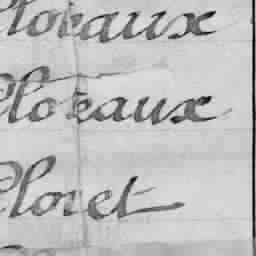 Cloteaux
Cloteaux
Cloret